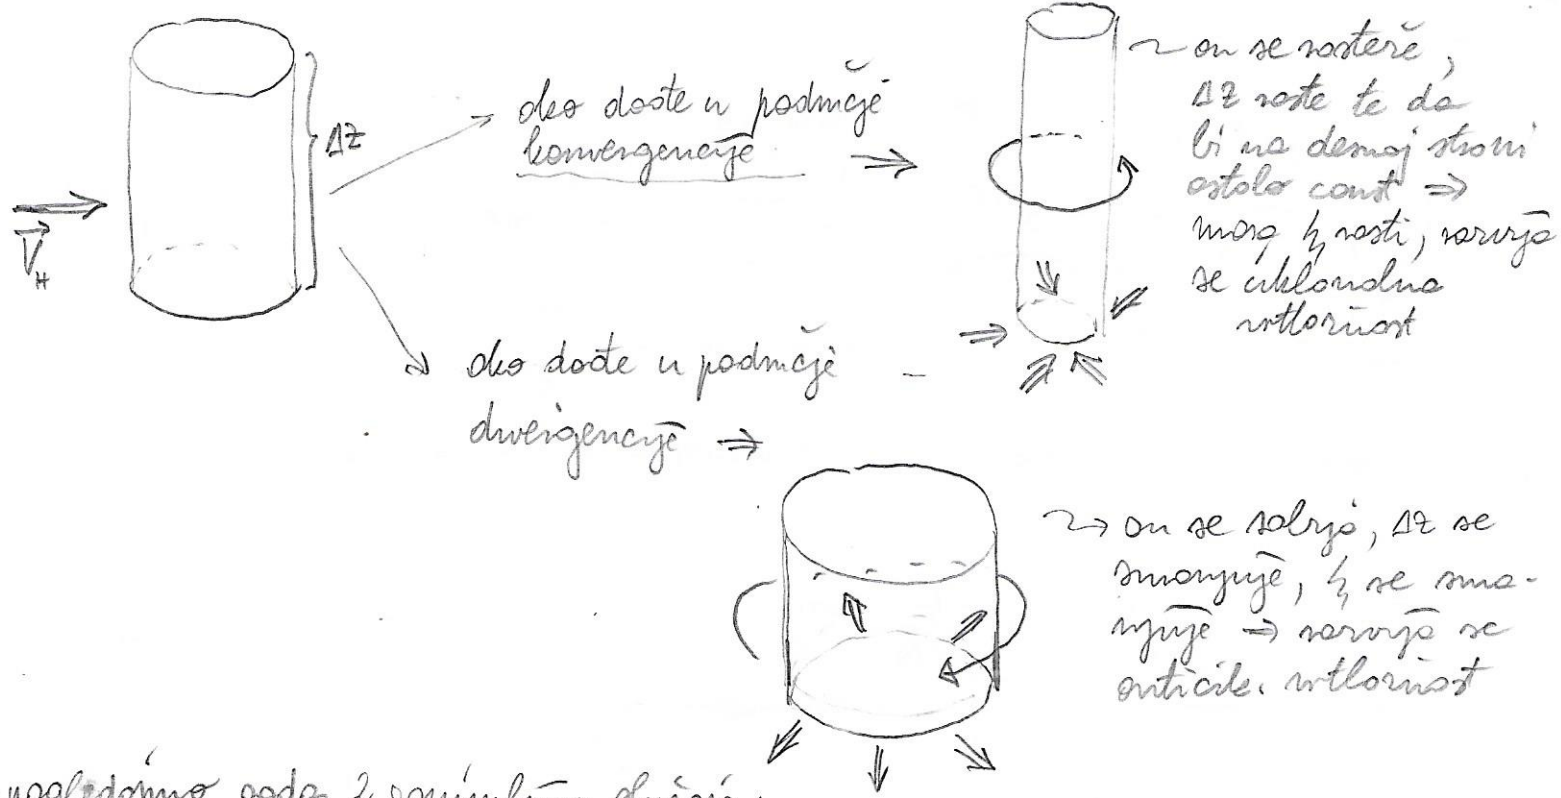 ΔZ
V⃗_H
ako dođe u područje
konvergencije
on se rasteže,
ΔZ raste te da
bi na desnoj strani
ostalo const ⇒
mora ξ rasti, razvija
se ciklonalna
vrtložnost
ako dođe u područje
divergencije ⇒
on se sabija, ΔZ se
smanjuje, ξ se sma-
njuje ⇒ razvija se
anticik. vrtložnost
pogledajmo sada 2